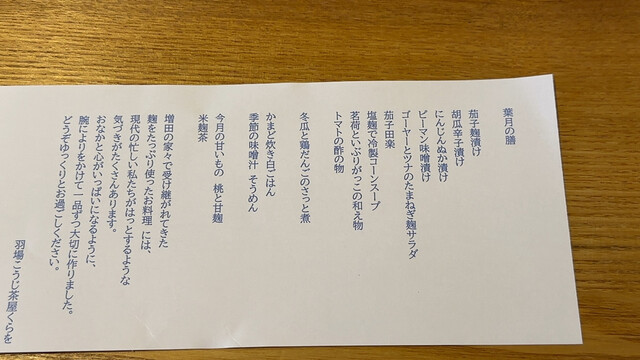 葉月の膳
茄子麹漬け
胡瓜辛子漬け
にんじんぬか漬け
ピーマン味噌漬け
ゴーヤーとツナのたまねぎ麹サラダ
茄子田楽
塩麹で冷製コーンスープ
茗荷といぶりがっこの和え物
トマトの酢の物
冬瓜と鶏だんごのさっと煮
かまど炊き白ごはん
季節の味噌汁 そうめん
今月の甘いもの 桃と甘麹
米麹茶
増田の家々で受け継がれてきた
麹をたっぷり使ったお料理 には、
現代の忙しい私たちがはっとするような
気づきがたくさんあります。
おなかと心がいっぱいになるように、
腕によりをかけて一品ずつ大切に作りました。
どうぞゆっくりとお過ごしください。
羽場こうじ茶屋くらを